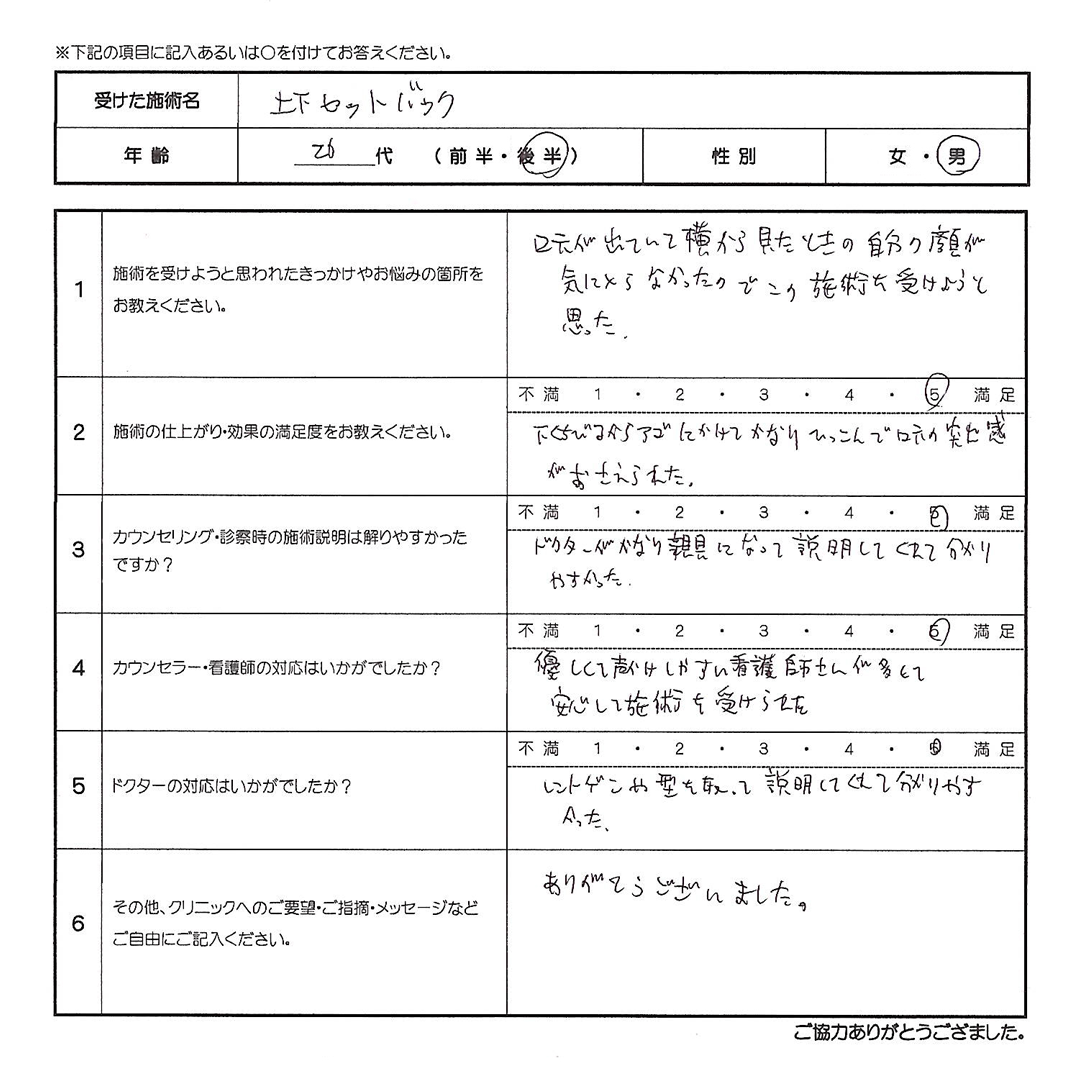 ※下記の項目に記入あるいは〇を付けてお答えください。
受けた施術名 上下セットバック
年齢 26代 (前半・後半) 性別 女・男
1 施術を受けようと思われたきっかけやお悩みの箇所を
お教えください。
口元が出ていて横から見たときの自分の顔が
気に なかったのでこの施術を受けようと
思った.
2 施術の仕上がり・効果の満足度をお教えください。
不満 1 ・ 2 ・ 3 ・ 4 ・ 5 満足
下くちびるからアゴにかけてかなりひっこんで口元の突出感
がおさえられた.
3 カウンセリング・診察時の施術説明は解りやすかった
ですか？
不満 1 ・ 2 ・ 3 ・ 4 ・ 5 満足
ドクターがかなり親身になって説明してくれて分かり
やすかった.
4 カウンセラー・看護師の対応はいかがでしたか？
不満 1 ・ 2 ・ 3 ・ 4 ・ 5 満足
優しくて声かけしやすい看護師さんが多くて
安心して施術を受けられた
5 ドクターの対応はいかがでしたか？
不満 1 ・ 2 ・ 3 ・ 4 ・ 5 満足
レントゲンや型を取って説明してくれて分かりやす
かった.
6 その他、クリニックへのご要望・ご指摘・メッセージなど
ご自由にご記入ください。
ありがとうございました。
ご協力ありがとうござました。